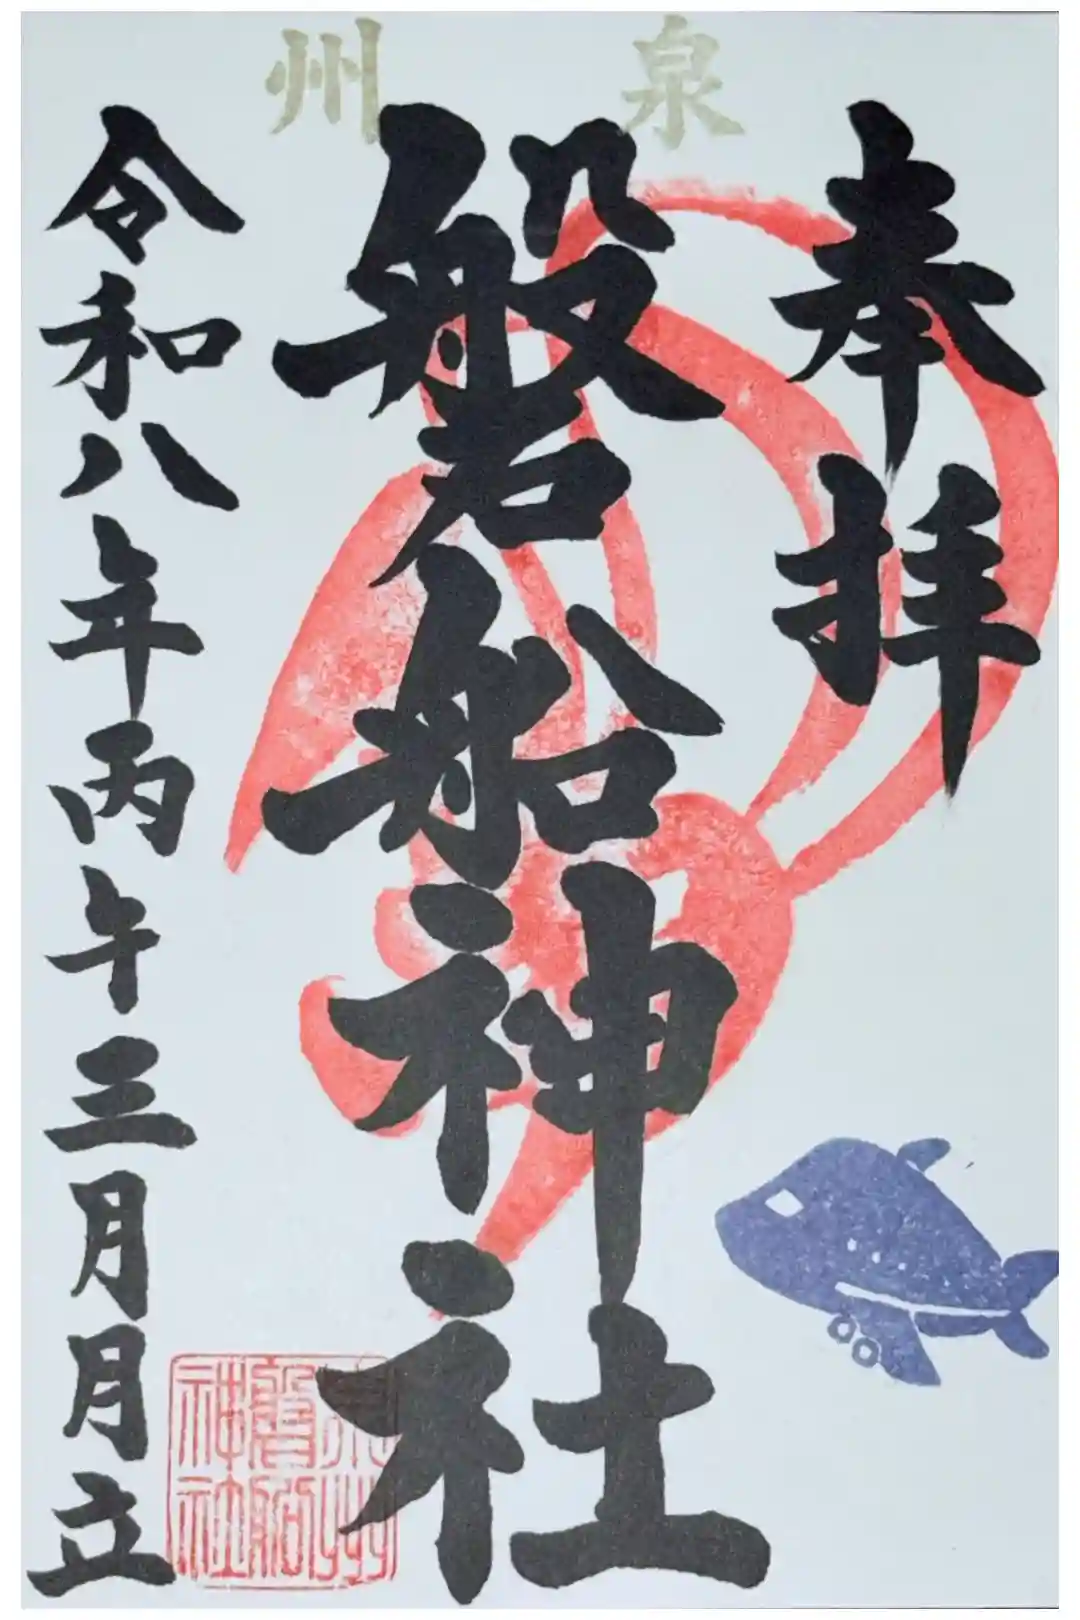 泉州
奉拝
磐船神社
令和八年丙午三月月立
泉州
磐船
神社